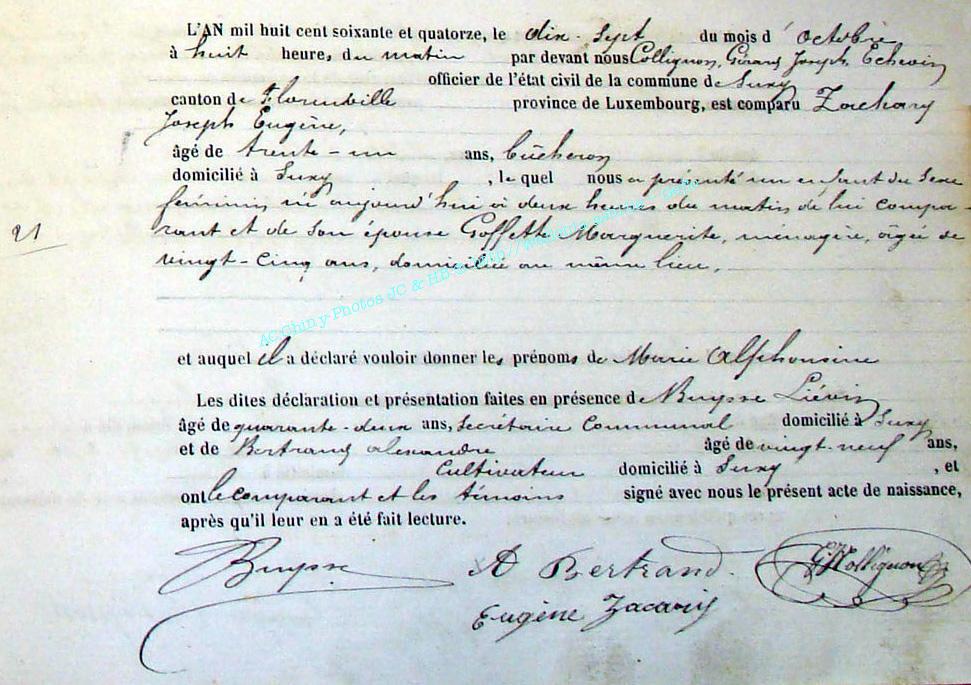 L'AN mil huit cent soixante et quatorze, le dix-sept du mois d'octobre
à huit heures du matin par devant nous Collignon, Gérard Joseph Echevin
officier de l'état civil de la commune de Suxy
canton de Florenville province de Luxembourg, est comparu Zachary
Joseph Eugène,
âgé de trente-un ans, bûcheron
domicilié à Suxy, le quel nous a présenté un enfant du sexe
féminin, né aujourd'hui à deux heures du matin de lui compa-
21
rant et de son épouse Goffette Marguerite, ménagère, âgée de
vingt-cinq ans, domiciliée au même lieu.
AC Chiny-Photos JC & HB
et auquel il a déclaré vouloir donner les prénoms de Marie Alphonsine
Les dites déclaration et présentation faites en présence de Buysse Liévin
âgé de quarante-deux ans, Secrétaire Communal domicilié à Suxy
et de Bertrand alexandre âgé de vingt-neuf ans,
Cultivateur domicilié à Suxy, et
ont le comparant et les témoins signé avec nous le présent acte de naissance,
après qu'il leur en a été fait lecture.
Buysse A Bertrand GJCollignon
Eugène Zacariy